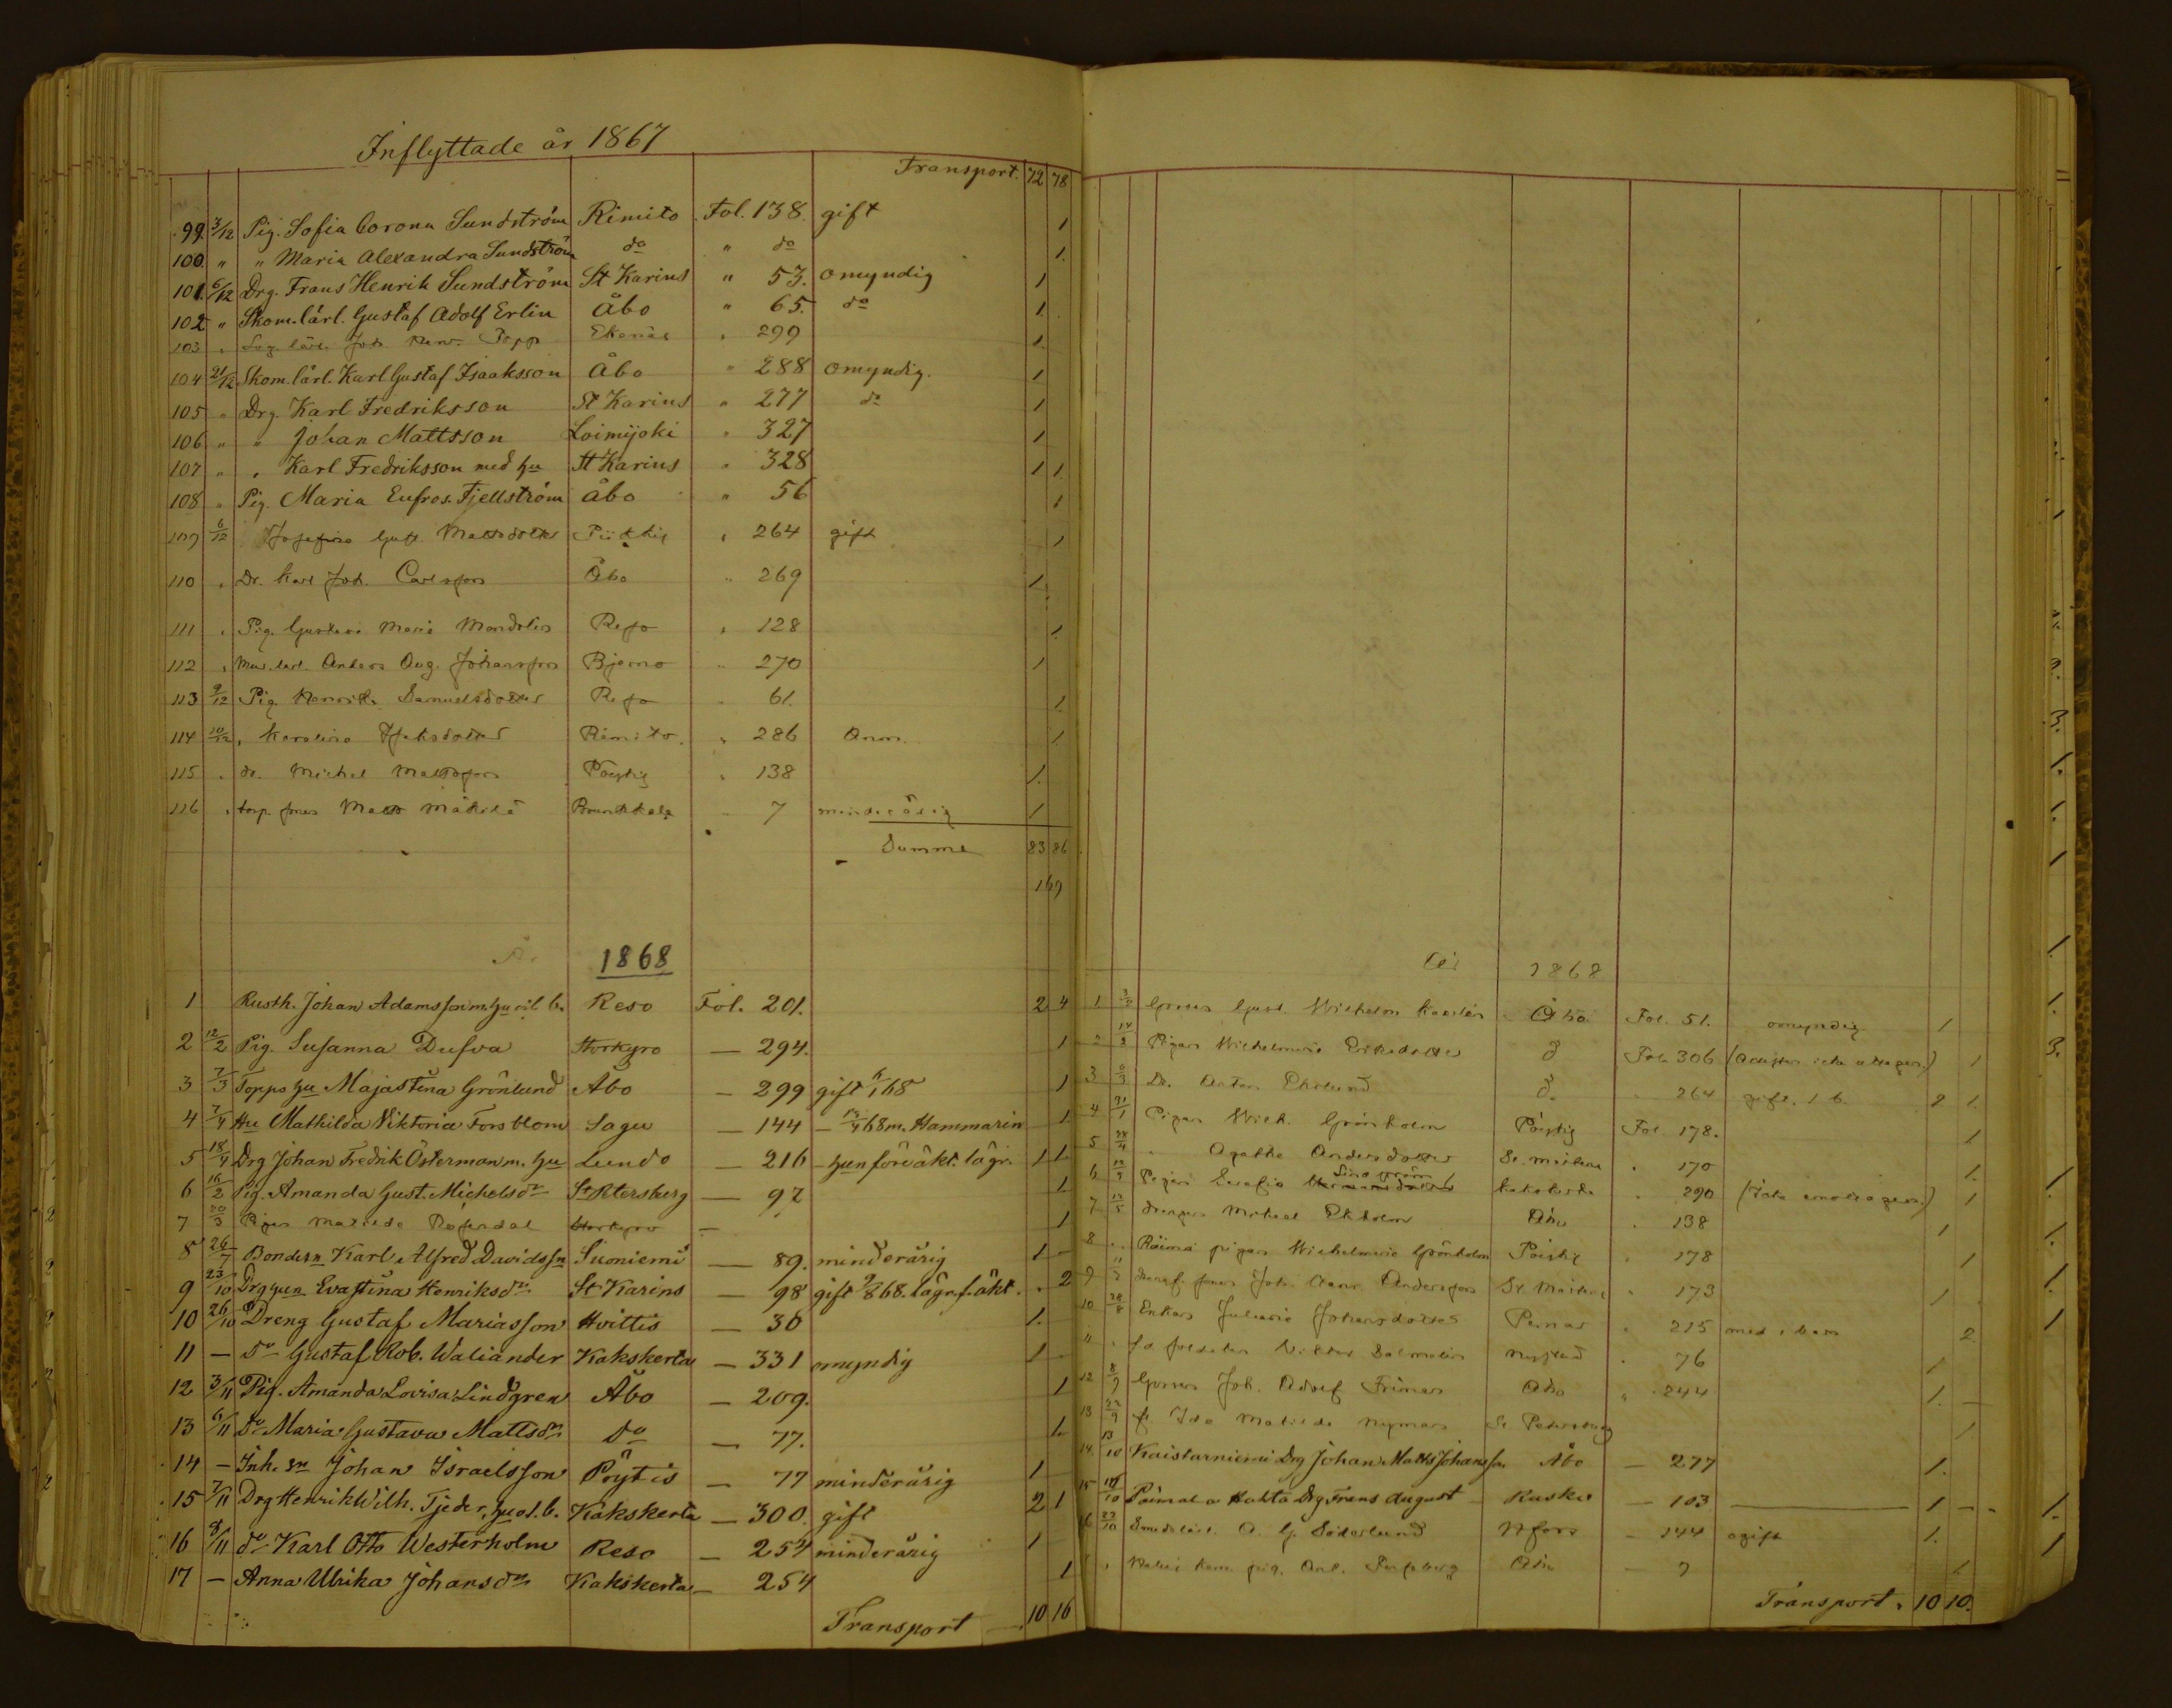 Inflyttade år 1867
Transport. 72 78
99. 3/12 Pig. Sofia Corona Sundström Rimito Fol. 138. gift 1
100. " " Maria Alexandra Sundström do " do 1.
101. 6/12 Drg. Frans Henrik Sundström St Karins " 53. omyndig 1
102 " Skom. lärl. Gustaf Adolf Erlin Åbo " 65. do 1.
103 " lärl. Joh. Popp Ekenäs " 299 1.
104 21/12 Skom. lärl. Karl Gustaf Isaaksson Åbo " 288 omyndig. 1
105 " Drg. Karl Fredriksson St Karins " 277 do 1
106 " " Johan Mattsson Loimijoki " 327 1
107 " " Karl Fredriksson med hu St Karins " 328 1 1.
108 " Pig. Maria Eufros. Fjellström Åbo " 56 1
109 6/12 Josefina Gust. Mattsdotter Piikkiö " 264 gift 1
110 " Dr. Karl Joh. Carlsson Åbo " 269 1.
111 " Pig. Gustava Maria Mandelin Reso " 128 1.
112 " Mur. lärl. Anders Aug. Johansson Bjerno " 270 1
113 9/12 Pig. Henrika Samuelsdotter Reso " 61. 1.
114 10/12 " Karolina Isaksdotter Rimito " 286 Anm. 1.
115 " dr. Michel Mattsson Pöytis " 138 1.
116 " torp. son Matts Mäkilä Brunkkala " 7 minderårig 1
Summa 83 86
169
1868
1 Rusth. Johan Adamsson m. hu o. b. Reso Fol. 201. 2 4
2 12/2 Pig. Susanna Dufva Storkyro — 294. 1
3 7/3 Popps hu Majastina Grönlund Åbo — 299 gift 68 1
4 7/4 Hu Mathilda Viktoria Forsblom Sagu — 144 — 68 m. Hammarin 1.
5 18/4 Drg Johan Fredrik Österman m. hu Lundo — 216 — hun förräkt. lägr. 1 1.
6 16/2 Pig. Amanda Gust. Michelsdr St Petersburg — 97 1
7 20/3 Pigan Matilda Rosendal Storkyro — 1
8 26/7 Bondesn Karl Alfred Davidssn Suoniemi — 89. minderårig 1 —
9 23/10 Drg hun Evastina Henriksdr St Karins — 98 gift 68. lägr. f. äkt. . 2
10 26/10 Dreng Gustaf Mariasson Hvittis — 30 1.
11 — do Gustaf Rob. Waliander Kakskerta — 331 omyndig 1 —
12 3/11 Pig. Amanda Lovisa Lindgren Åbo — 209. 1
13 6/11 do Maria Gustava Mattsdr do — 77. 1.
14 — Inh. sn Johan Israelsson Pöytis — 77 minderårig 1
15 7/11 Drg Henrik Wilh. Tjeder, hu o 1. b. Kakskerta — 300. gift 2 1
16 8/11 do Karl Otto Westerholm Reso — 254 minderårig 1
17 — Anna Ulrika Johansdr Kakskerta — 254 1
Transport — 10 16
År 1868
1 3/2 Gossen Gust. Wilhelm Karlén Åbo. Fol. 51. omyndig 1
2 14/2 Pigan Wilhelmina Eriksdotter d Fol. 306 (Attesten icke uttagen) 1
3 6/3 Dr. Anton Eklund d. " 264 gift, 1 b. 2 1.
4 31/1 Pigan Wilh. Grönholm Pöytis Fol. 178. 1
5 24/4 " Agatha Andersdotter St. Mårtens " 170 1.
6 Pigan Serafia Hermansdotter Kakskerta " 290 1
7 Drengen Mikael Ekholm Åbo " 138 1
8 " Räimä pigan Wilhelmina Grönholm Pöytis " 178 1
9 Joh. Henr. Andersson St. Mårtens " 173 1
10 28/8 Enkan Juliana Johansdotter Pemar " 215 med 1 barn 2
11 " f.d. soldaten Viktor Salmelin Nystad " 76 1
12 8/9 Gossen Joh. Adolf Friman Åbo " 244 1. —
13 22/9 fr. Ida Matilda Nyman St Petersburg 1
14. 13/10 Kaistarniemi Drg Johan Matts Johansson Åbo — 277 1.
15 17/10 Poimala Hakta Drg Frans August — Rusko — 103 — 1 —
16 22/10 Smedslärl. A. G. Söderlund Hfors — 144 ogift 1.
" pig. Åbo — 7 1
Transport. 10 10.